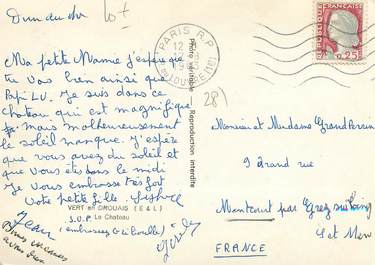 Dimanche
lot
Ma petite Mamie j'espère que
tu vas bien ainsi que
Papi LU. Je suis dans ce
chateau qui est magnifique
mais malheureusement
le soleil manque. J'espère
que vous avez du soleil et
que vous êtes dans le midi
Je vous embrasse très fort
Votre petite fille.
VERT en DROUAIS (E & L)
Le Chateau
Jean
PARIS R.P.
12 H
R. DU LOUVRE (1er)
REPUBLIQUE FRANÇAISE
0,25
Photo véritable
Reproduction interdite
281
Monsieur et Madame Grand Perrin
9 Grand rue
Montcourt par Grez sur Loing
S et Marne
FRANCE